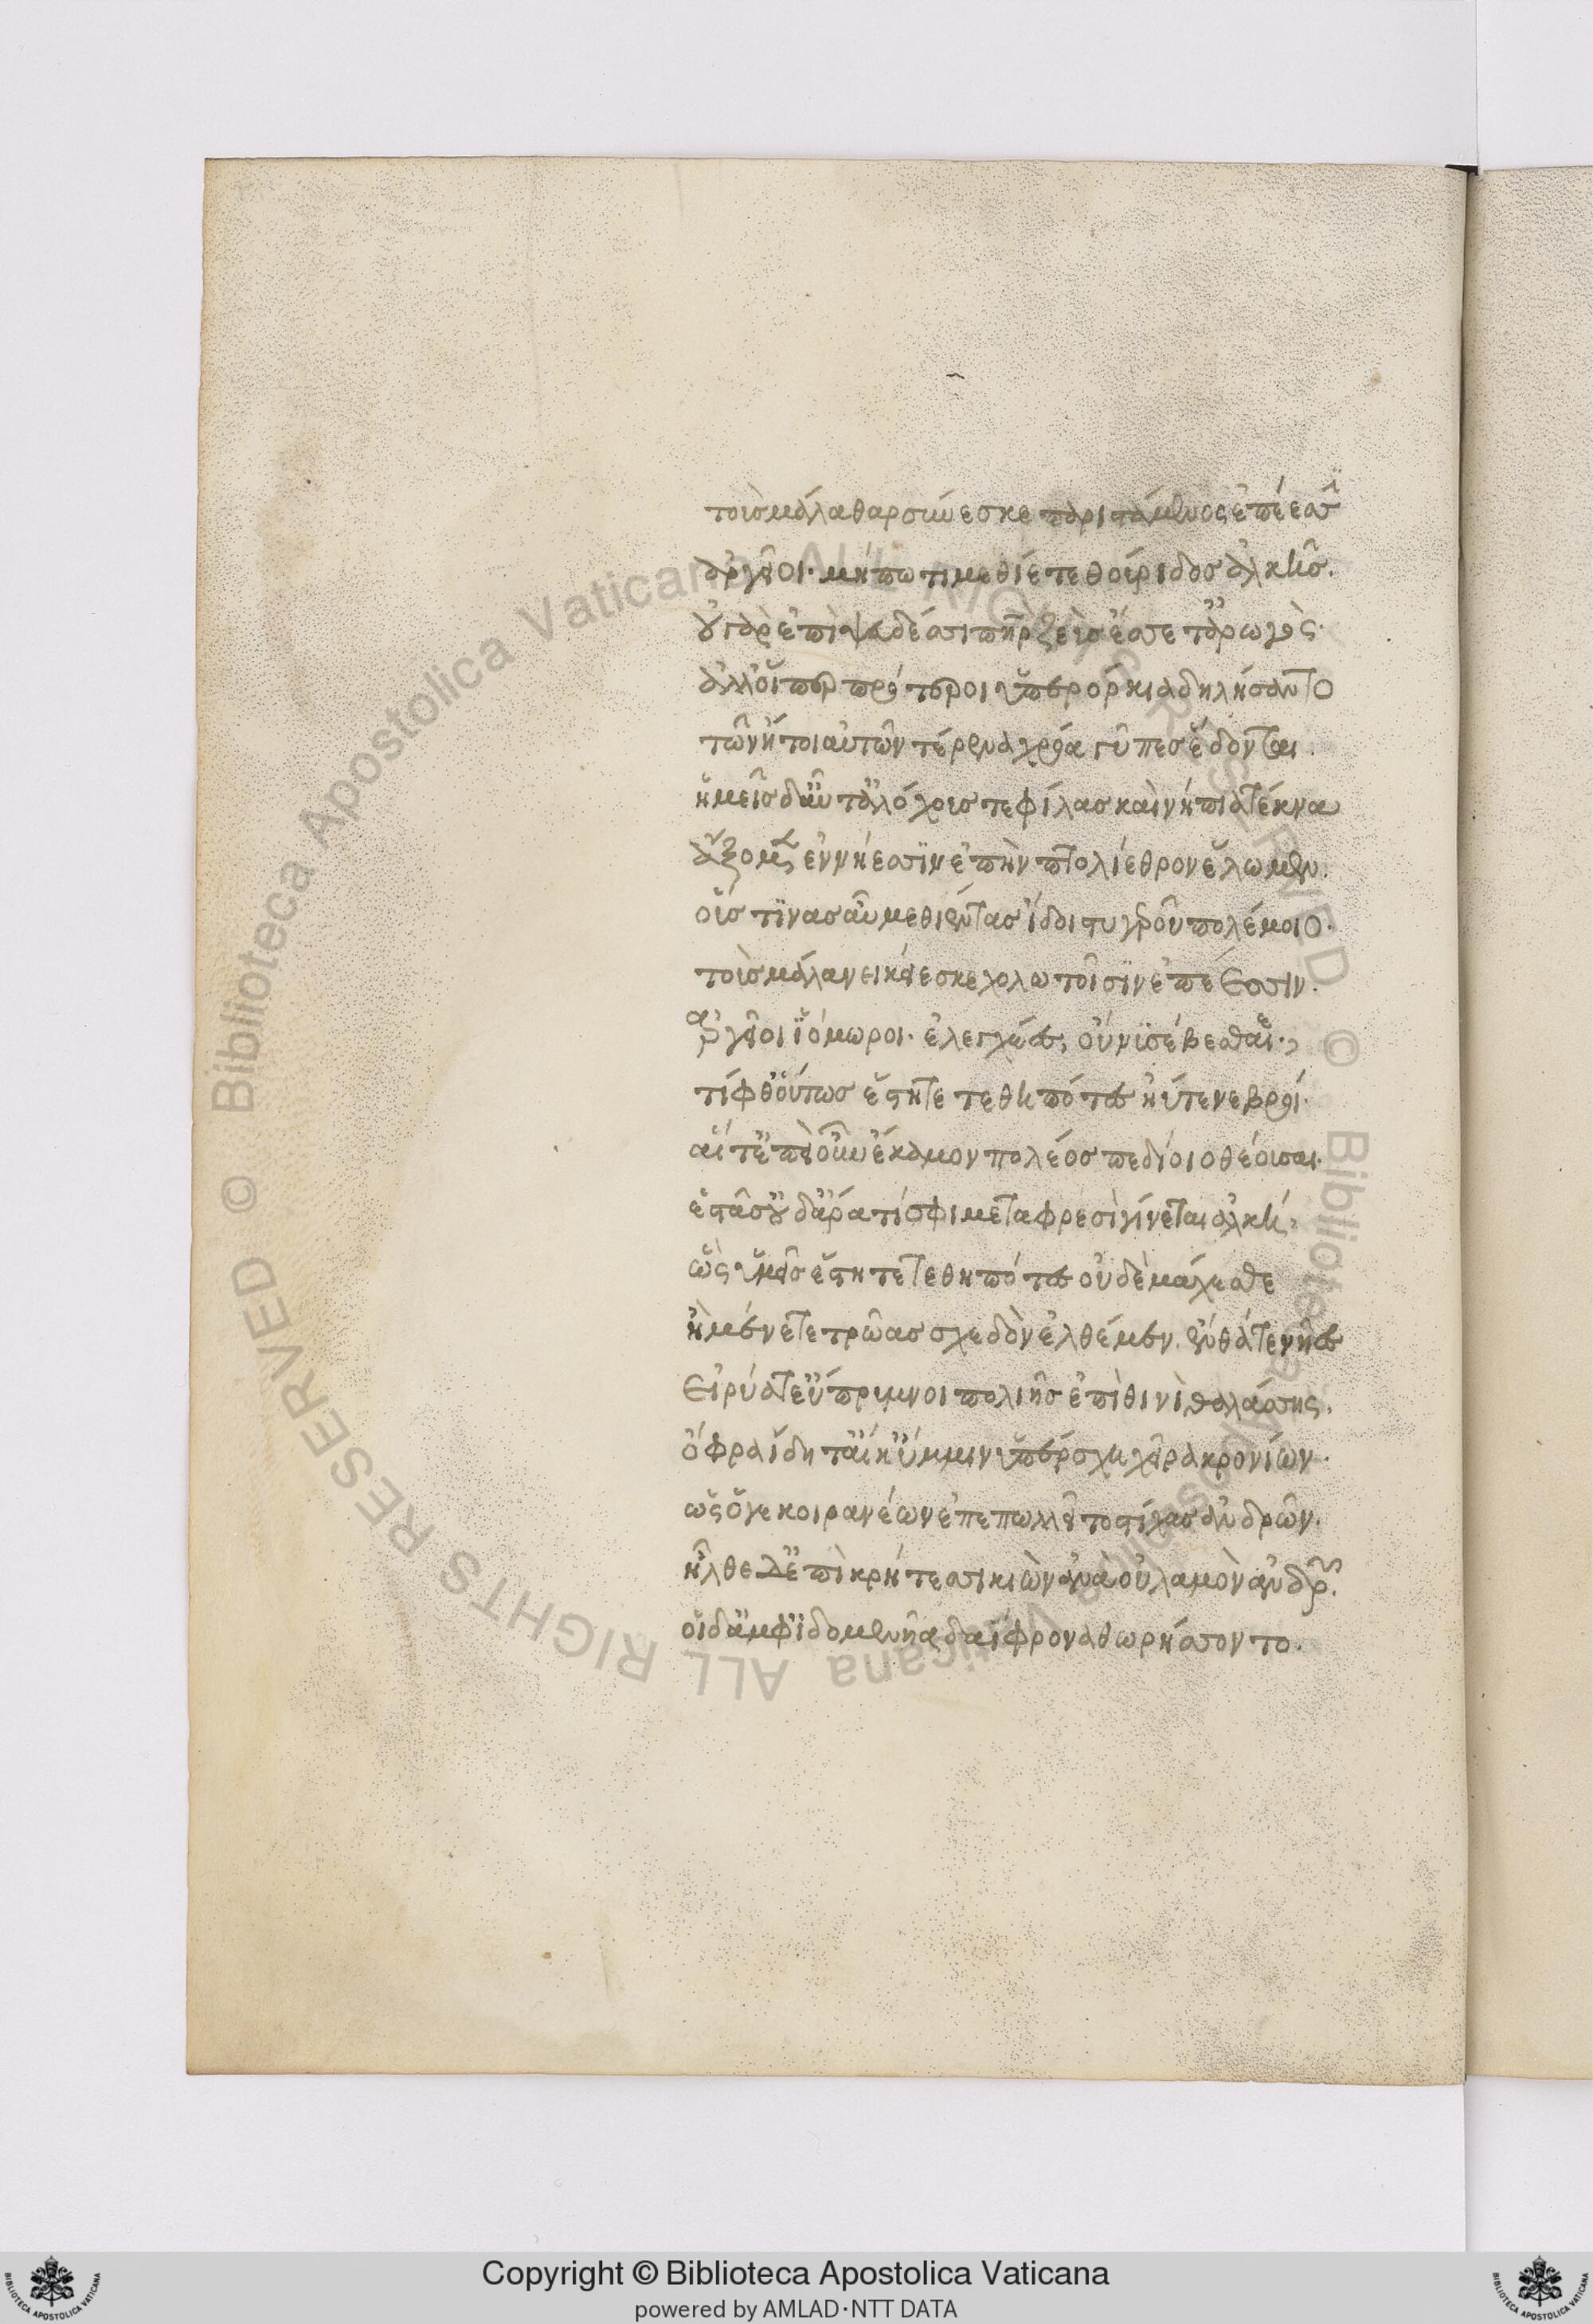 τοὺς μάλα θαρσύνεσκε παριστάμενος ἐπέεσσιν
ἀργεῖοι· μή πω τι μεθίετε θούριδος ἀλκῆς.
οὐ γὰρ ἐπὶ ψευδέσσι πατὴρ ζεὺς ἔσσετ' ἀρωγός·
ἀλλ' οἵπερ πρότεροι ὑπὲρ ὅρκια δηλήσαντο
τῶν ἤτοι αὐτῶν τέρενα χρόα γῦπες ἔδονται.
ἡμεῖς δ' αὖτ' ἀλόχους τε φίλας καὶ νήπια τέκνα
ἄξομεν ἐν νήεσσιν ἐπὴν πτολίεθρον ἕλωμεν.
οὕς τινας αὖ μεθιέντας ἴδοι στυγεροῦ πολέμοιο·
τοὺς μάλα νεικείεσκε χολωτοῖσιν ἐπέεσσιν·
ἀργεῖοι ἰόμωροι· ἐλεγχέες, οὔ νυ σέβεσθε·
τίφθ' οὕτως ἔστητε τεθηπότες ἠύτε νεβροί·
αἵτ' ἐπεὶ οὖν ἔκαμον πολέος πεδίοιο θέουσαι·
ἑστᾶσ' οὐδ' ἄρα τίς σφι μετὰ φρεσὶ γίνεται ἀλκή·
ὣς ὑμεῖς ἔστητε τεθηπότες οὐδὲ μάχεσθε
ἢ μένετε τρῶας σχεδὸν ἐλθέμεν. ἔνθά τε νῆες
εἰρύατ' εὔπρυμνοι πολιῆς ἐπὶ θινὶ θαλάσσης.
ὄφρα ἴδητ' αἴ κ' ὔμμιν ὑπέρσχῃ χεῖρα κρονίων·
ὣς ὅγε κοιρανέων ἐπεπωλεῖτο στίχας ἀνδρῶν·
ἦλθε δ' ἐπὶ κρήτεσσι κιὼν ἀνὰ οὐλαμὸν ἀνδρῶν.
οἱ δ' ἀμφ' ἰδομενῆα δαΐφρονα θωρήσσοντο.
© Biblioteca Apostolica Vaticana ALL RIGHTS RESERVED
Copyright © Biblioteca Apostolica Vaticana
powered by AMLAD·NTT DATA
BIBLIOTECA APOSTOLICA VATICANA
BIBLIOTECA APOSTOLICA VATICANA